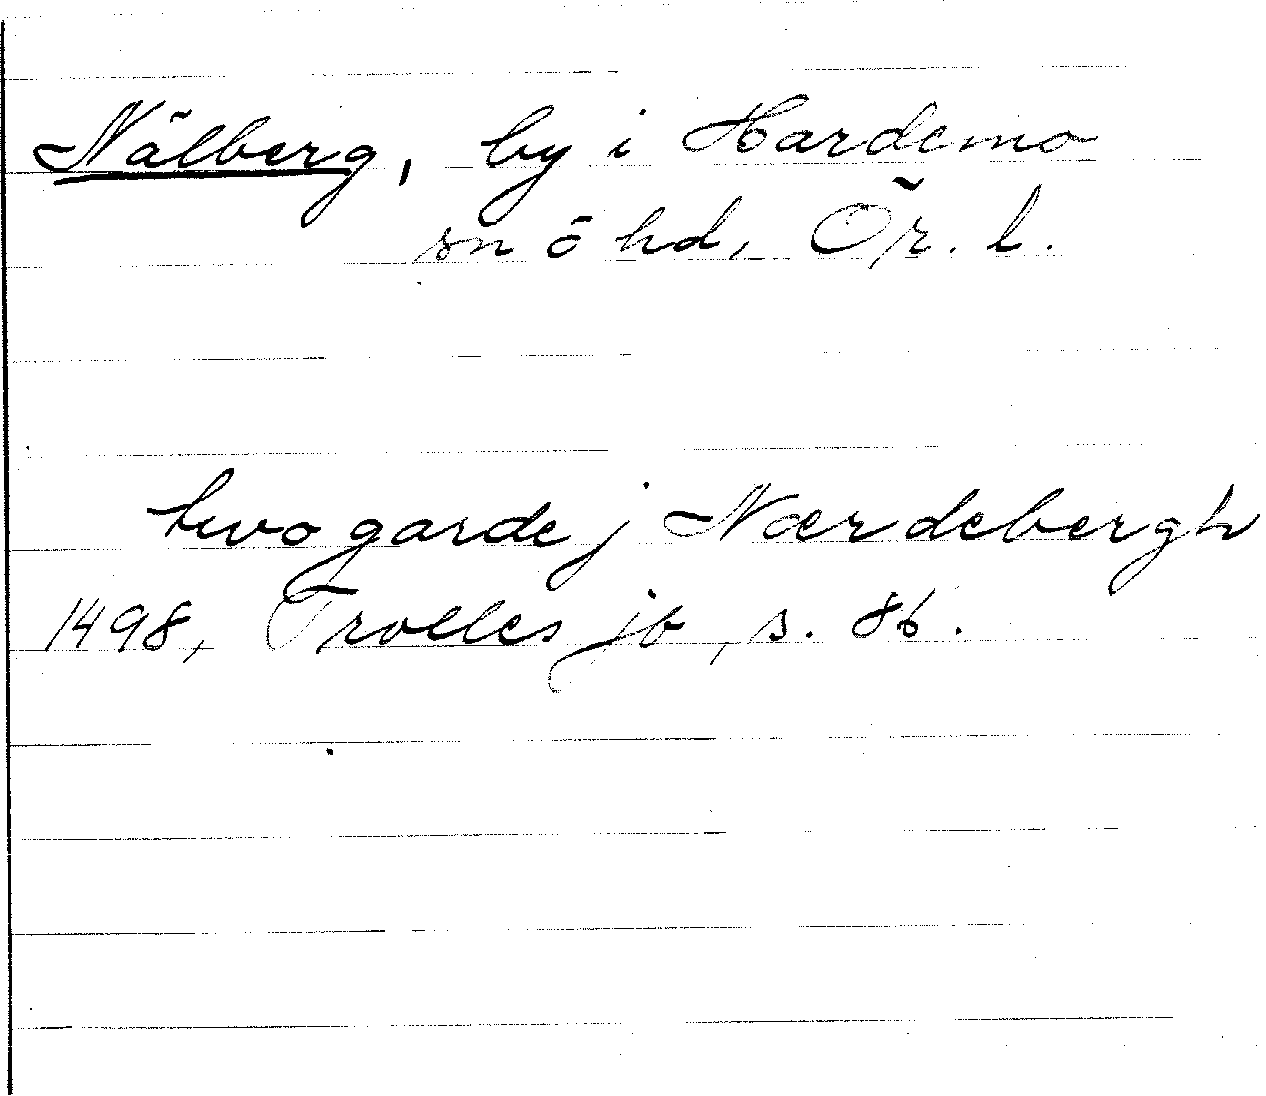 Nälberg, by i Hardemo
sn ö hd, Ör. l.
two garde j Nærdebergh
1498, Trolles jb, s. 86.